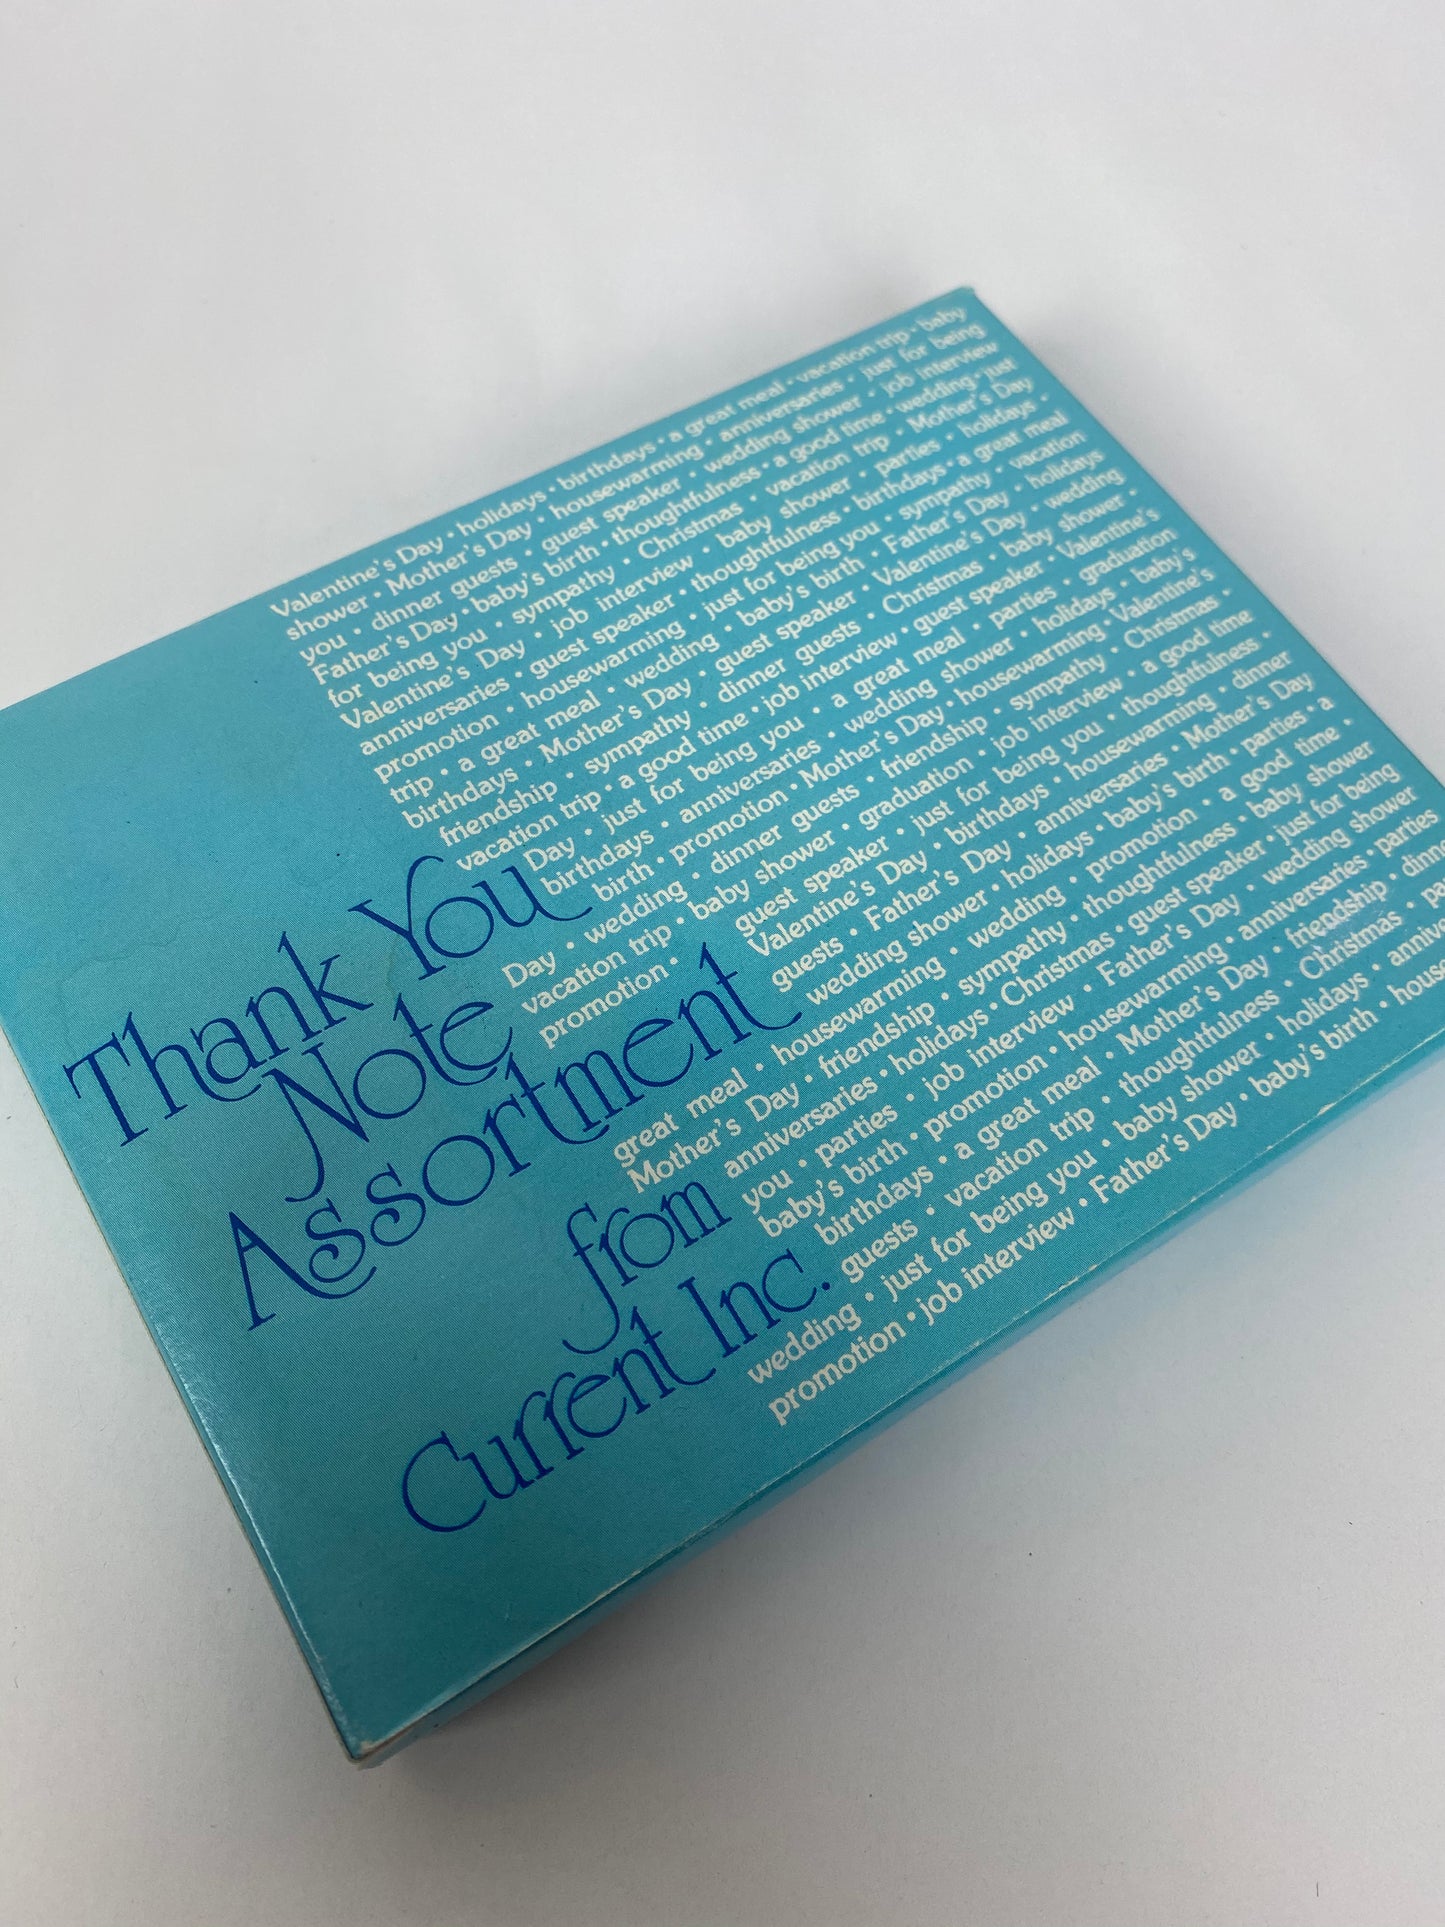 Valentine's Day • holidays • birthdays • a great meal • vacation trip • baby
shower • Mother's Day • housewarming • anniversaries • just for being
you • dinner guests • guest speaker • wedding shower • job interview
Father's Day • baby's birth • thoughtfulness • a good time • wedding • just
for being you • sympathy • Christmas • vacation trip • Mother's Day
Valentine's Day • job interview • baby shower • parties • holidays •
anniversaries • guest speaker • thoughtfulness • birthdays • a great meal
promotion • housewarming • just for being you • sympathy • vacation
trip • a great meal • wedding • baby's birth • Father's Day • holidays
birthdays • Mother's Day • guest speaker • Valentine's Day • wedding
friendship • sympathy • dinner guests • Christmas • baby shower •
vacation trip • a good time • job interview • guest speaker • Valentine's
Day • just for being you • a great meal • parties • graduation
birthdays • anniversaries • wedding shower • holidays • baby's
birth • promotion • Mother's Day • housewarming • Valentine's
Day • wedding • dinner guests • friendship • sympathy • Christmas •
vacation trip • baby shower • graduation • job interview • a good time
promotion • guest speaker • just for being you • thoughtfulness •
Valentine's Day • birthdays • housewarming • dinner
guests • Father's Day • anniversaries • Mother's Day
wedding shower • holidays • baby's birth • parties • a
great meal • housewarming • wedding • promotion • a good time •
Mother's Day • friendship • sympathy • thoughtfulness • baby shower
anniversaries • holidays • Christmas • guest speaker • just for being
you • parties • job interview • Father's Day • wedding shower
baby's birth • promotion • housewarming • anniversaries • parties
birthdays • a great meal • Mother's Day • friendship • dinne
guests • vacation trip • thoughtfulness • Christmas • pa
wedding • just for being you • baby shower • holidays • anniver
promotion • job interview • Father's Day • baby's birth • house
Thank You
Note
Assortment
from
Current Inc.